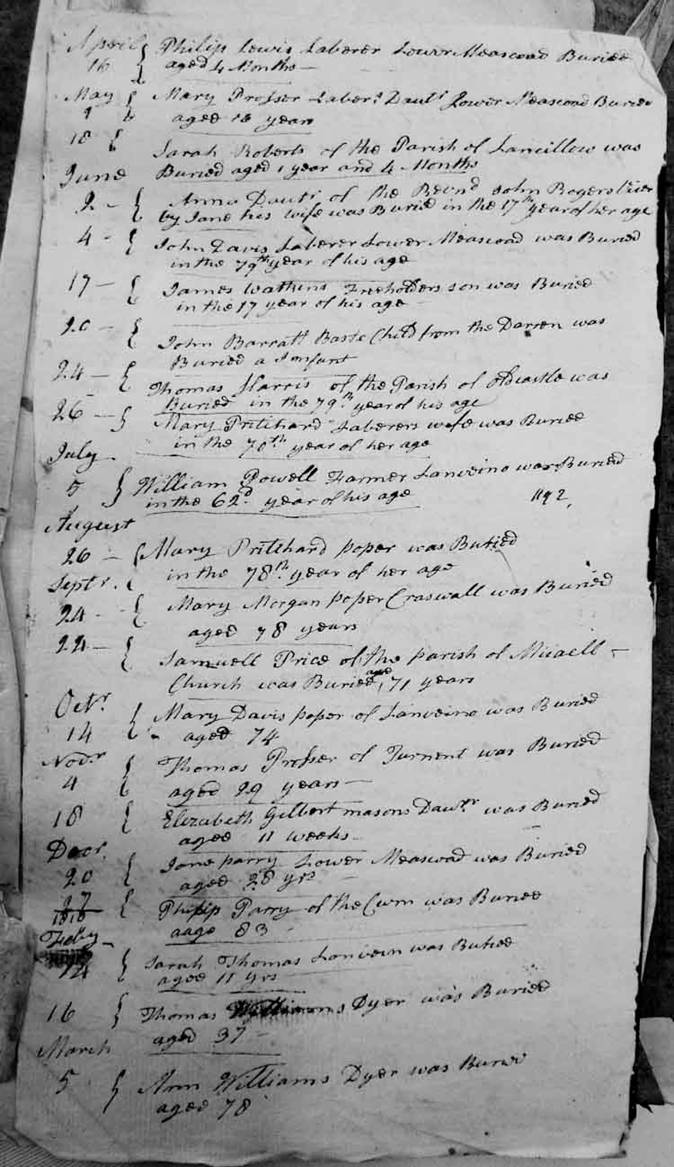 April { Philip Lewis Laberer Lower Meascoad Buried
16 { aged 4 Months —
May { Mary Prosser Labers Dautr Lower Meascoad Buried
9 { aged 18 years
18 {
Sarah Roberts of the Parish of Lancillow was
June Buried aged 1 year and 4 Months
2 – { Anna Dautr of the Revnd John Rogers
by Jane his wife was Buried in the 17th year of her age
4 – { John Davis Laberer Lower Meascoad was Buried
in the 79th year of his age
17 – { James Watkins Freeholders son was Buried
in the 17 year of his age
20 – { John Barratt Baste Child from the Darren was
Buried a Infant
24 – { Thomas Harris of the Parish of Oldcastle was
Buried in the 79th year of his age
26 – } Mary Pritchard Laberers wife was Buried
in the 70th year of her age
July
5 } William Powell Farmer Lanveino was Buried
in the 62d year of his age
August
26 – { Mary Pritchard poper was Buried
in the 78th year of her age
Septr. {
24 – { Mary Morgan poper Craswall was Buried
aged 78 years
22 – { Samuell Price of the parish of Micaell –
Church was Buried aged 71 years
Octr
14 { Mary Davis poper of Lanveino was Buried
aged 74
Novr
4 { Thomas Prosser of Turnent was Buried
aged 29 years —
18 { Elizabeth Gilbert masons Dawtr was Buried
aged 11 weeks
Decr.
20 { Jane parry Lower Meascoad was Buried
aged 28 yrs
27 { Philip Parry of the Cwm was Buried
1818 aage 83
Feby –
12 { Sarah Thomas Lanvein was Buried
aged 11 yrs
16 } Thomas Williams Dyer was Buried
March aged 37 –
5 } Ann Williams Dyer was Buried
aged 78